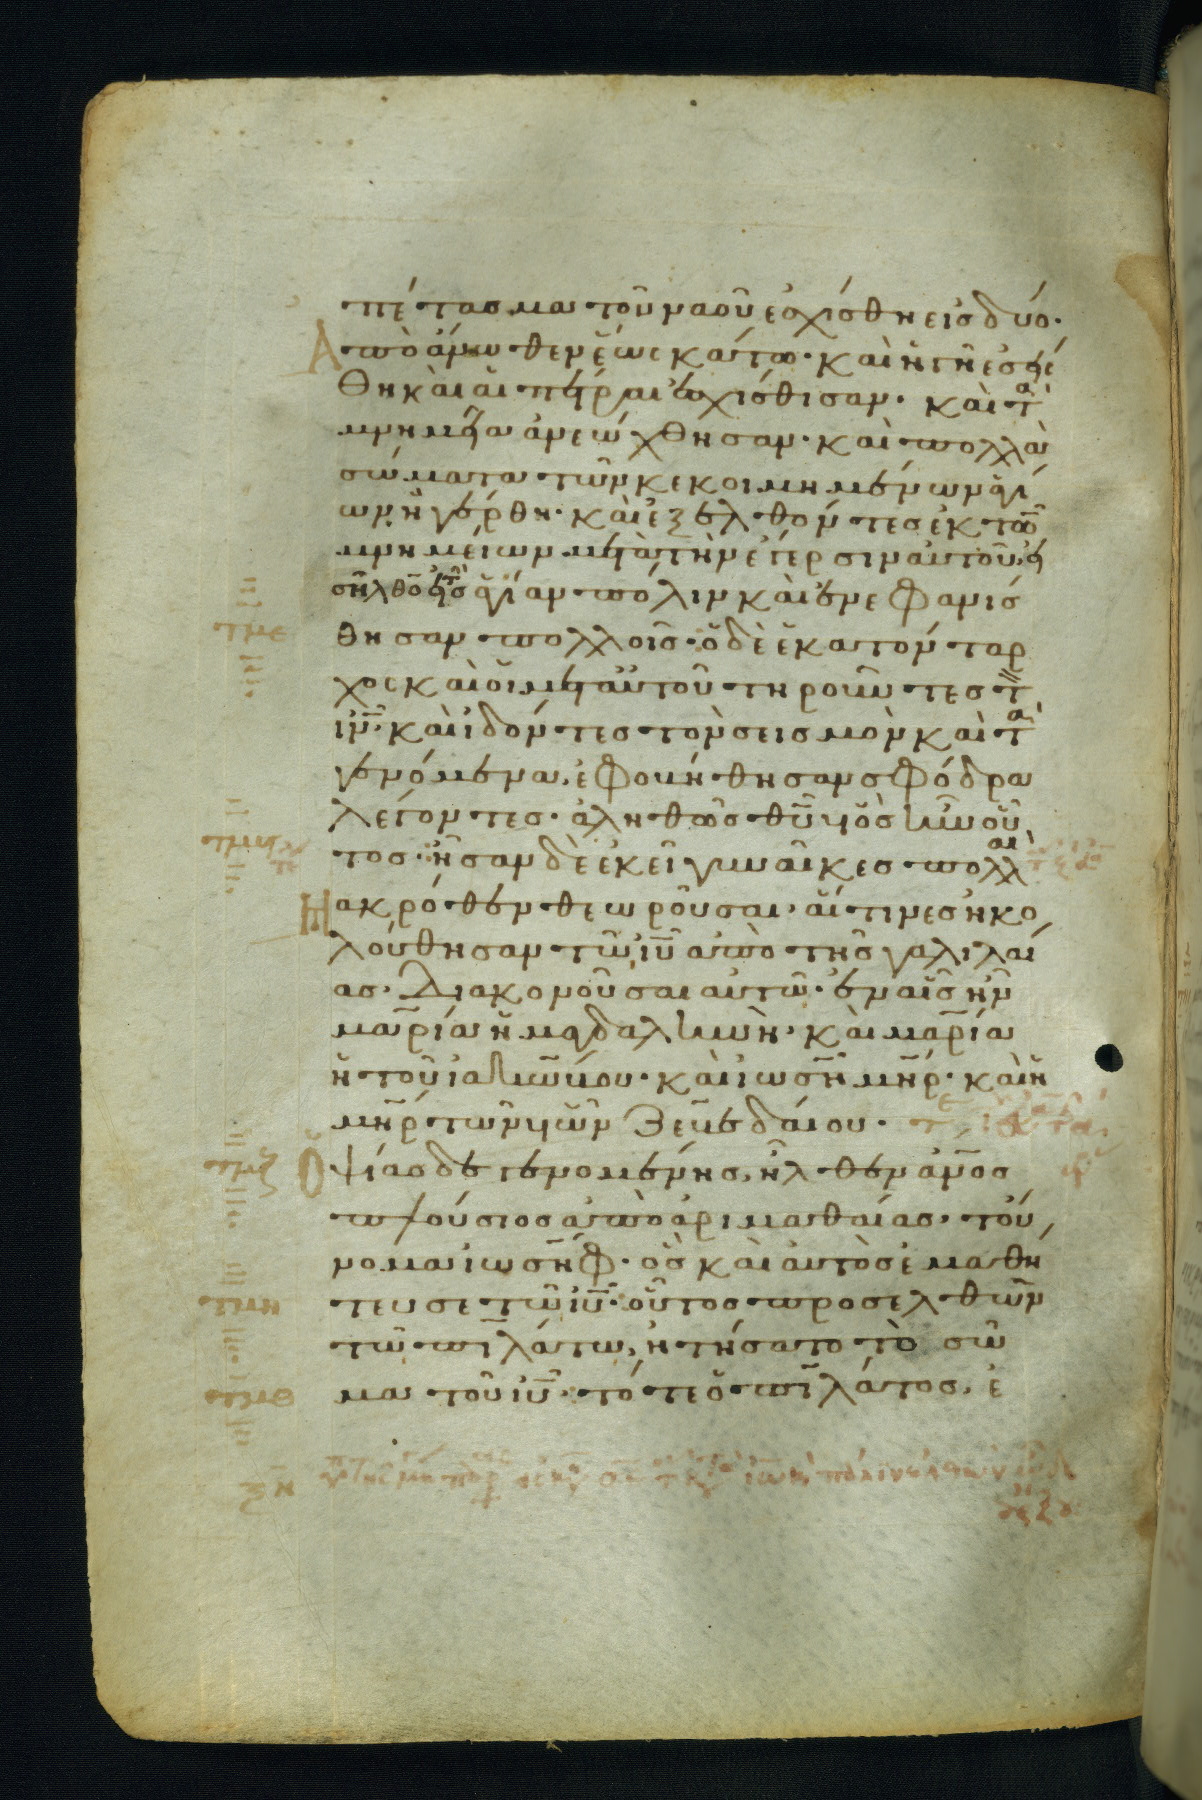 πέτασμα τοῦ ναοῦ ἐσχίσθη εἰς δύο·
Ἀπὸ ἄνωθεν ἕως κάτω· καὶ ἡ γῆ ἐσεί
σθη καὶ αἱ πέτραι ἐσχίσθισαν· καὶ τὰ
μνημεῖα ἀνεώχθησαν· καὶ πολλὰ
σώματα τῶν κεκοιμημένων ἁγί
ων ἠγέρθη· καὶ ἐξελθόντες ἐκ τῶν
μνημείων μετὰ τὴν ἔγερσιν αὐτοῦ, εἰ
σῆλθον εἰς τὴν ἁγίαν πόλιν καὶ ἐνεφανίσ
θησαν πολλοῖς· ὁ δὲ ἑκατόνταρ
χος καὶ οἱ μετ αὐτοῦ τηροῦντες τὸν
ιν· καὶ ἰδόντες τὸν σεισμὸν καὶ τὰ
γενόμενα, ἐφοβήθησαν σφόδρα
λέγοντες· ἀληθῶς θυ υἱὸς ἦν οὗ
τος· ἦσαν δὲ ἐκεῖ γυναῖκες πολλαὶ
μακρόθεν θεωροῦσαι· αἵτινες ἠκο
λούθησαν τῶ ιυ ἀπὸ τῆς γαλιλαί
ας· διακονοῦσαι αὐτῶ· ἐν αἷς ἦν
μαρία ἡ μαγδαληνὴ· καὶ μαρία
ἡ τοῦ ἰακώβου· καὶ ἰωσῆ μηρ· καὶ ἡ
μηρ τῶν υἱῶν ζεβεδαίου·
Ὀψίας δὲ γενομένης, ἦλθεν ἄνος
πλούσιος ἀπὸ ἀριμαθαίας· τοὔ
νομα ἰωσήφ· ὃς καὶ αὐτὸς ἐμαθή
τευσε τῶ ιυ· οὗτος προσελθὼν
τῶ πιλάτω, ἠτήσατο τὸ σῶ
μα τοῦ ιυ· τότε ὁ πιλάτος, ἐ
τμε
τμζ
τμη
τμθ